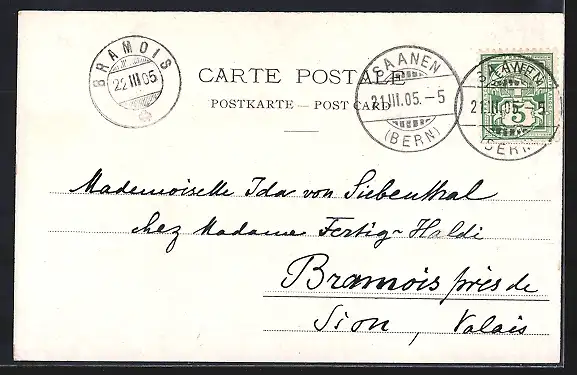 BRAMOIS
22 III 05
CARTE POSTALE
POSTKARTE — POST CARD
SAANEN
21.III.05.–5
(BERN)
SAANEN
21.III.05.–5
(BERN)
5
Mademoiselle Ida von Siebenthal
chez Madame Fertig-Haldi
Bramois près de
Sion, Valais